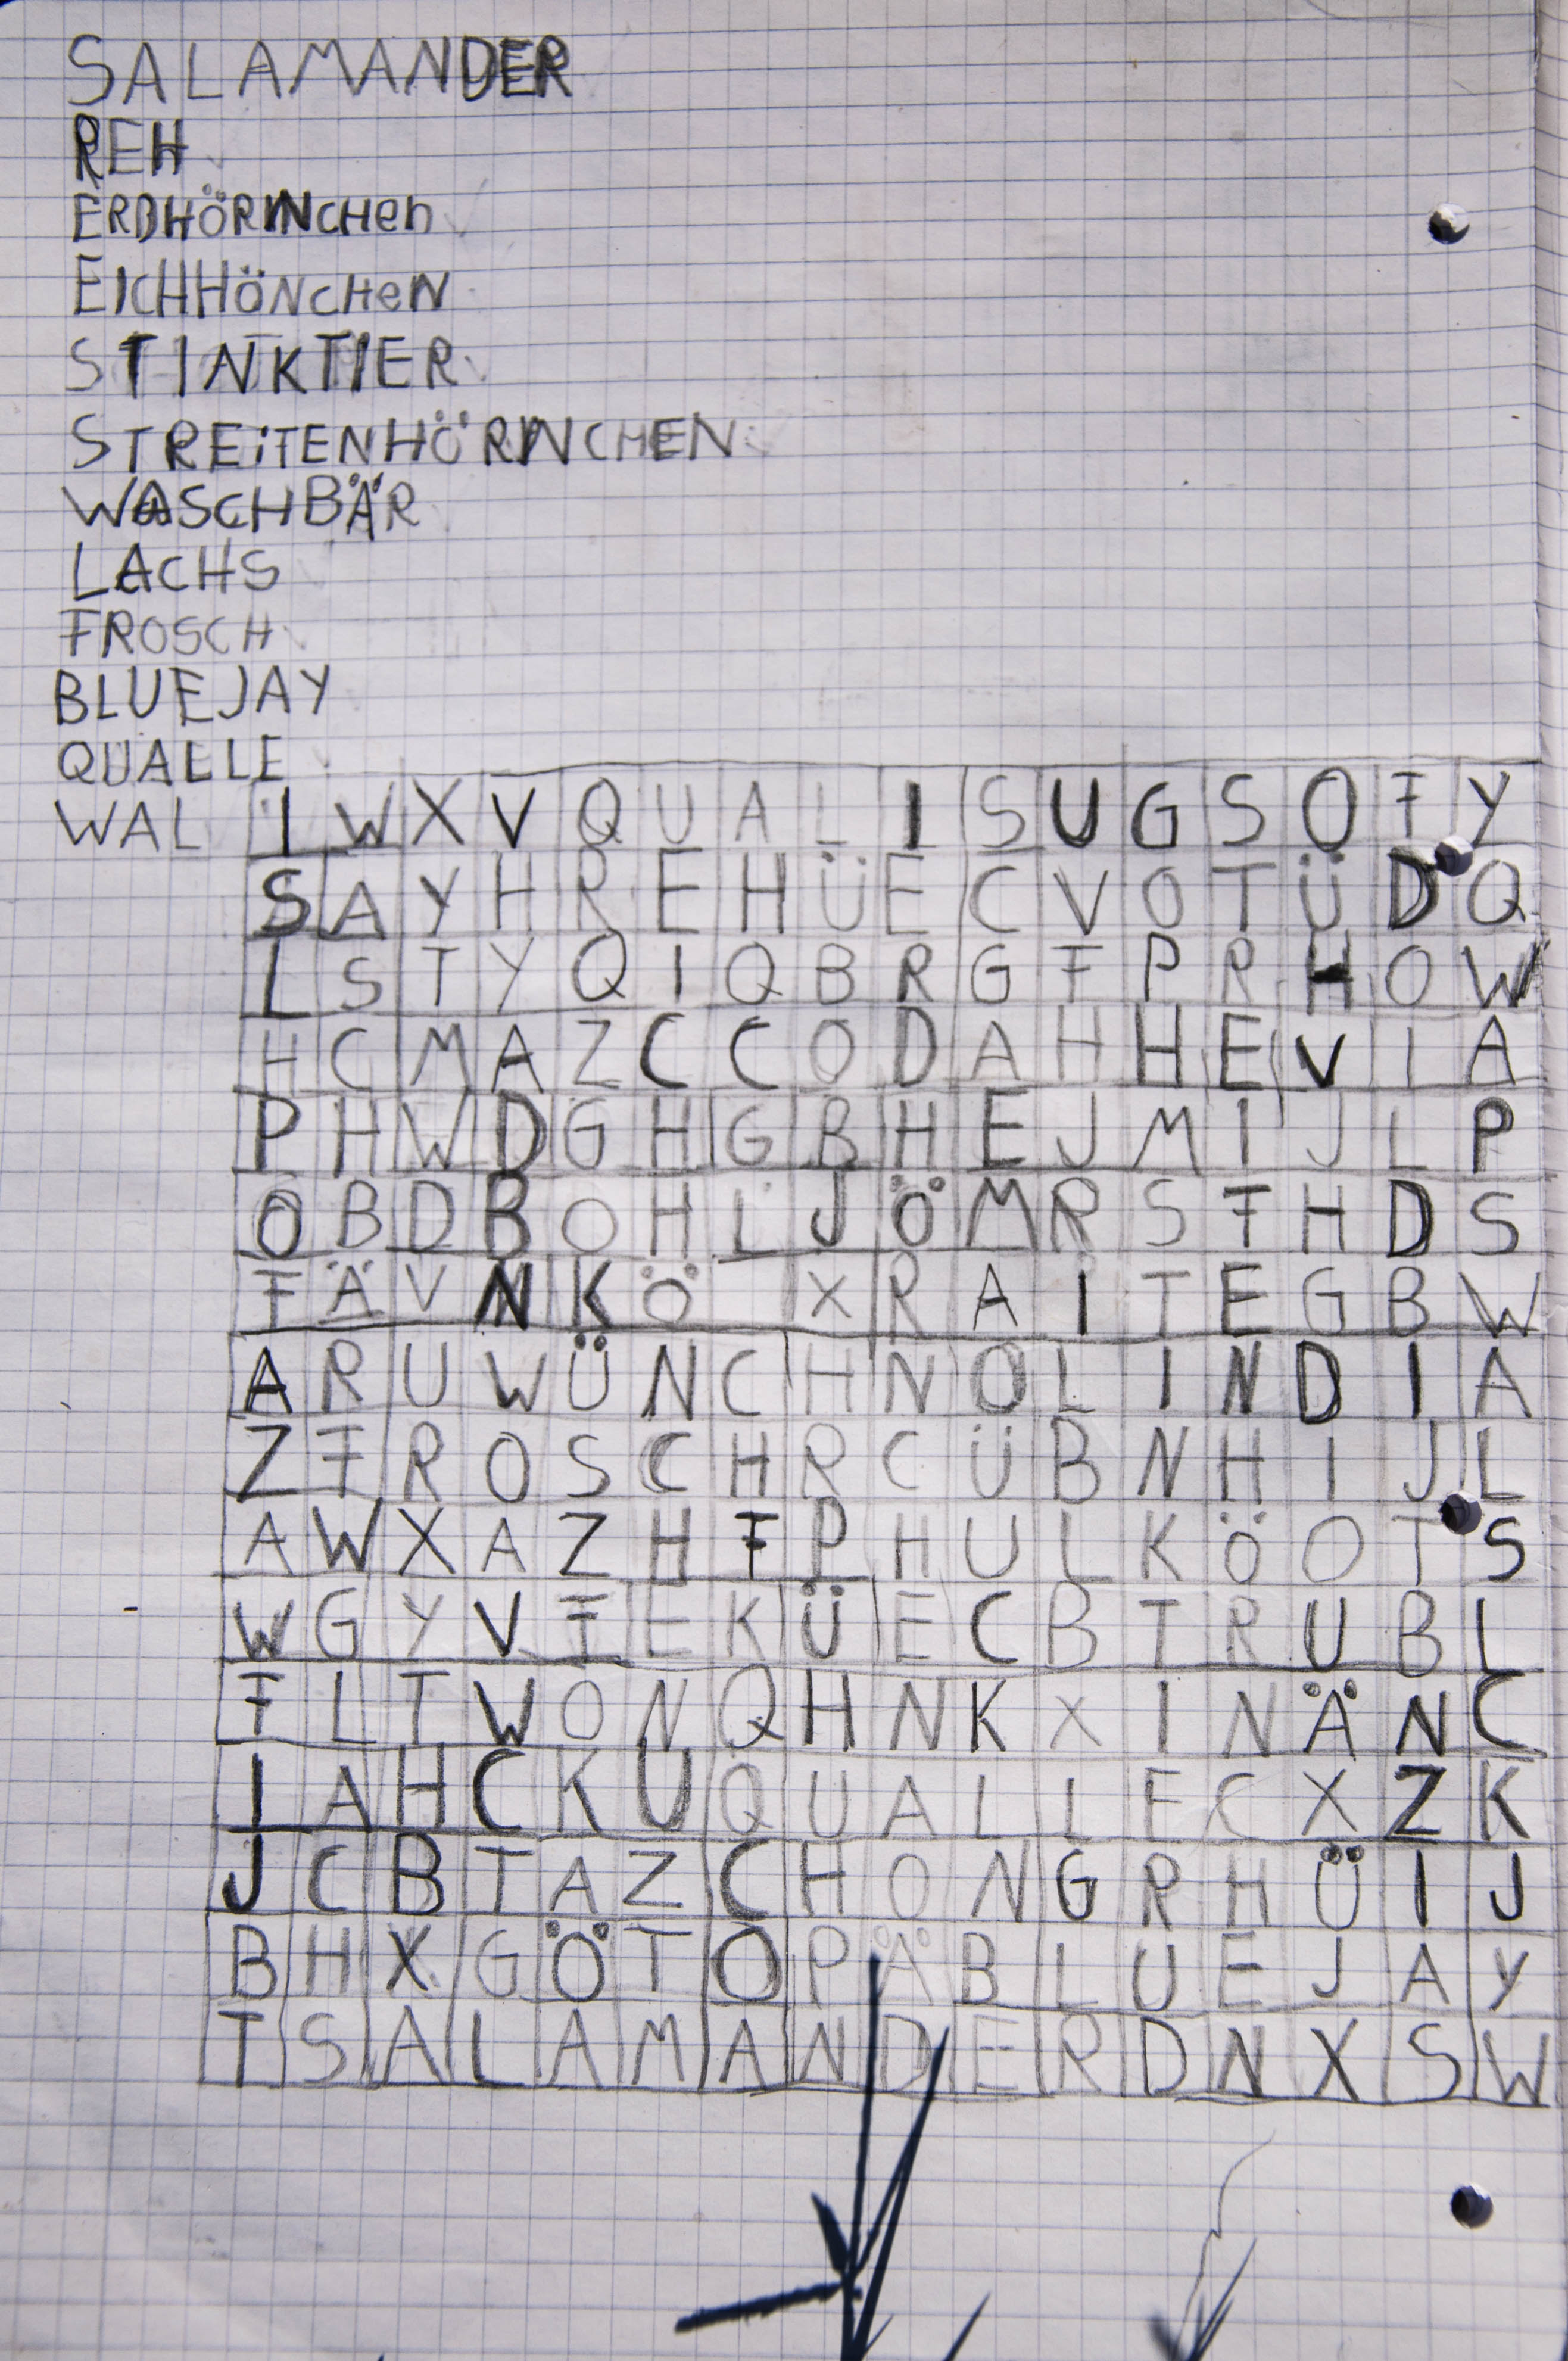 SALAMANDER
REH
ERDHÖRNCHEN
EICHHÖNCHEN
STINKTIER
STREiTENHÖRNCHEN
WASCHBÄR
LACHS
FROSCH
BLUEJAY
QUALLE
WAL
I W X V Q U A L I S U G S O F Y
S A Y H R E H Ü E C V O T Ü D Q
L S T Y Q I Q B R G F P R H O W
H C M A Z C C O D A H H E V I A
P H W D G H G B H E J M I J L P
O B D B O H L J Ö M R S F H D S
F Ä V N K Ö X R A I T E G B W
A R U W Ü N C H N O L I N D I A
Z F R O S C H R C Ü B N H I J L
A W X A Z H F P H U L K Ö O T S
W G Y V F E K Ü E C B T R U B L
F L T W O N Q H N K X I N Ä N C
I A H C K U Q U A L L E C X Z K
J C B T A Z C H O N G R H Ü I J
B H X G Ö T O P Ä B L U E J A Y
T S A L A M A N D E R D N X S W